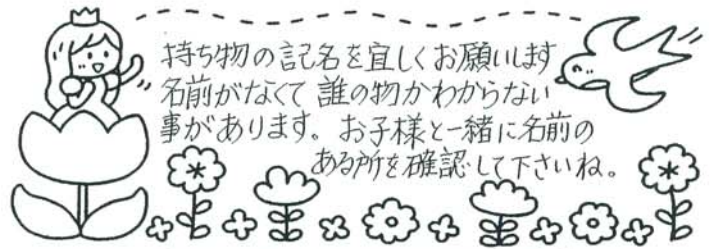 持ち物の記名を宜しくお願いします
名前がなくて 誰の物かわからない
事があります。お子様と一緒に名前の
ある所を確認して下さいね。